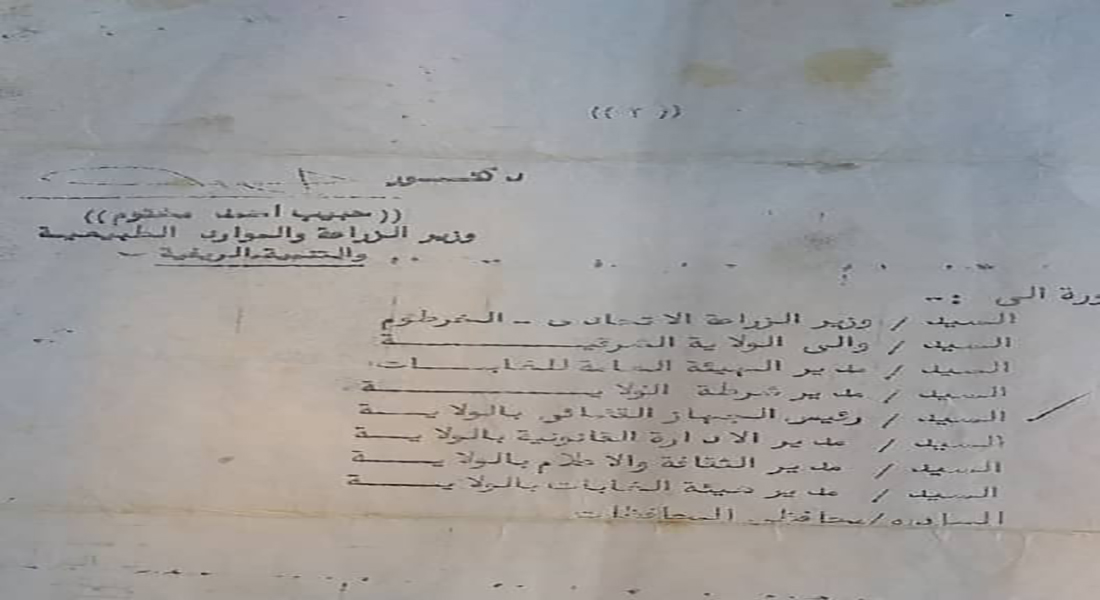 (( ٢ ))
دكتور
(( حبيب احمد مختوم ))
وزير الزراعة والموارد الطبيعية
والتنمية الريفية
صورة الى :-
السيد / وزير الزراعة الاتحادى - الخرطوم
السيد / والى الولاية الشرقية
السيد / مدير الهيئة العامة للغابات
السيد / مدير شرطة الولاية
السيد / رئيس الجهاز القضائى بالولاية
السيد / مدير الادارة القانونية بالولاية
السيد / مدير الثقافة والاعلام بالولاية
السيد / مدير هيئة الغابات بالولاية
الساده / محافظى المحافظات